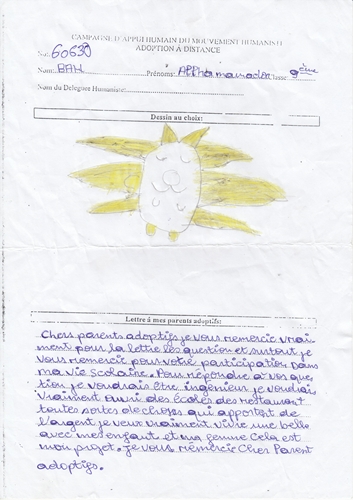 CAMPAGNE D'APPUI HUMAIN DU MOUVEMENT HUMANISTE
ADOPTION À DISTANCE
No: 60630
Nom: BAH Prénoms: Alpha mamadou Classe: 9ème
Nom du Délégué Humaniste:
Dessin au choix:
Lettre à mes parents adoptifs:
Chers parents adoptifs je vous remercie vrai
ment pour la lettre les question et surtout je
vous remercie pour votre participation dans
ma vie scolaire. Pour répondre a vos que
tion je voudrais être ingénieur je voudrais
vraiment ouvri des écoles des restaurant
toutes sortes de choses qui apportent de
l'argent je veux vraiment vivre une belle
avec mes enfant et ma femme Cela est
mon projet. je vous remercie Cher Parent
adoptifs.